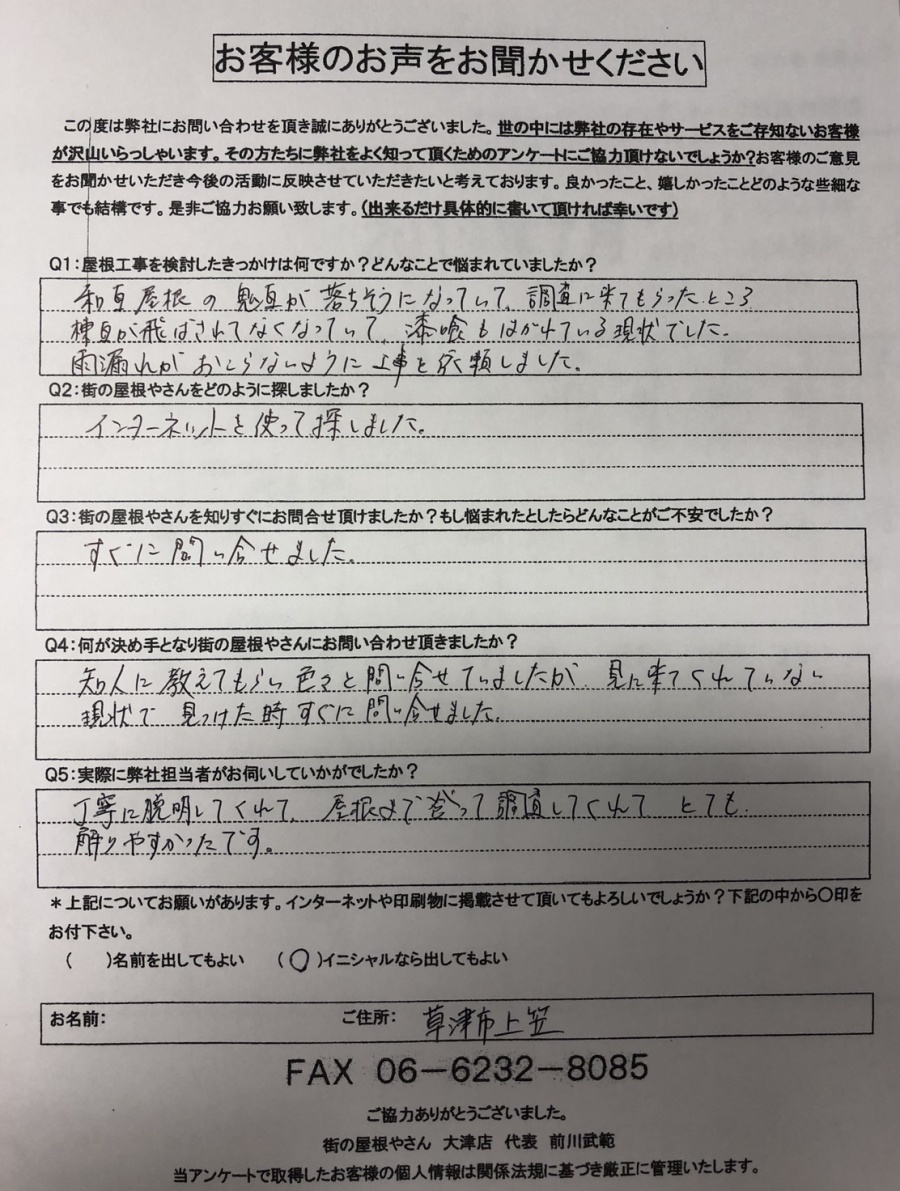 お客様のお声をお聞かせください
この度は弊社にお問い合わせを頂き誠にありがとうございました。世の中には弊社の存在やサービスをご存知ないお客様
が沢山いらっしゃいます。その方たちに弊社をよく知って頂くためのアンケートにご協力頂けないでしょうか?お客様のご意見
をお聞かせいただき今後の活動に反映させていただきたいと考えております。良かったこと、嬉しかったことどのような些細な
事でも結構です。是非ご協力お願い致します。(出来るだけ具体的に書いて頂ければ幸いです)
Q1:屋根工事を検討したきっかけは何ですか?どんなことで悩まれていましたか?
和瓦屋根の鬼瓦が落ちそうになっていて、調査に来てもらったところ
棟瓦が飛ばされてなくなっていて、漆喰もはがれている現状でした。
雨漏れがおこらないように工事を依頼しました。
Q2:街の屋根やさんをどのように探しましたか?
インターネットを使って探しました。
Q3:街の屋根やさんを知りすぐにお問合せ頂けましたか?もし悩まれたとしたらどんなことがご不安でしたか?
すぐに問い合せました。
Q4:何が決め手となり街の屋根やさんにお問い合わせ頂きましたか?
知人に教えてもらい色々と問い合せていましたが、見に来てくれていない
現状で見つけた時すぐに問い合せました。
Q5:実際に弊社担当者がお伺いしていかがでしたか?
丁寧に説明してくれて、屋根まで登って調査してくれてとても
解りやすかったです。
*上記についてお願いがあります。インターネットや印刷物に掲載させて頂いてもよろしいでしょうか?下記の中から〇印を
お付下さい。
( )名前を出してもよい (〇)イニシャルなら出してもよい
お名前: ご住所: 草津市上笠
FAX 06-6232-8085
ご協力ありがとうございました。
街の屋根やさん 大津店 代表 前川武範
当アンケートで取得したお客様の個人情報は関係法規に基づき厳正に管理いたします。